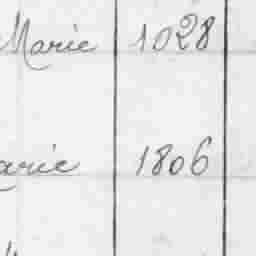 Marie 1028
arie 1806